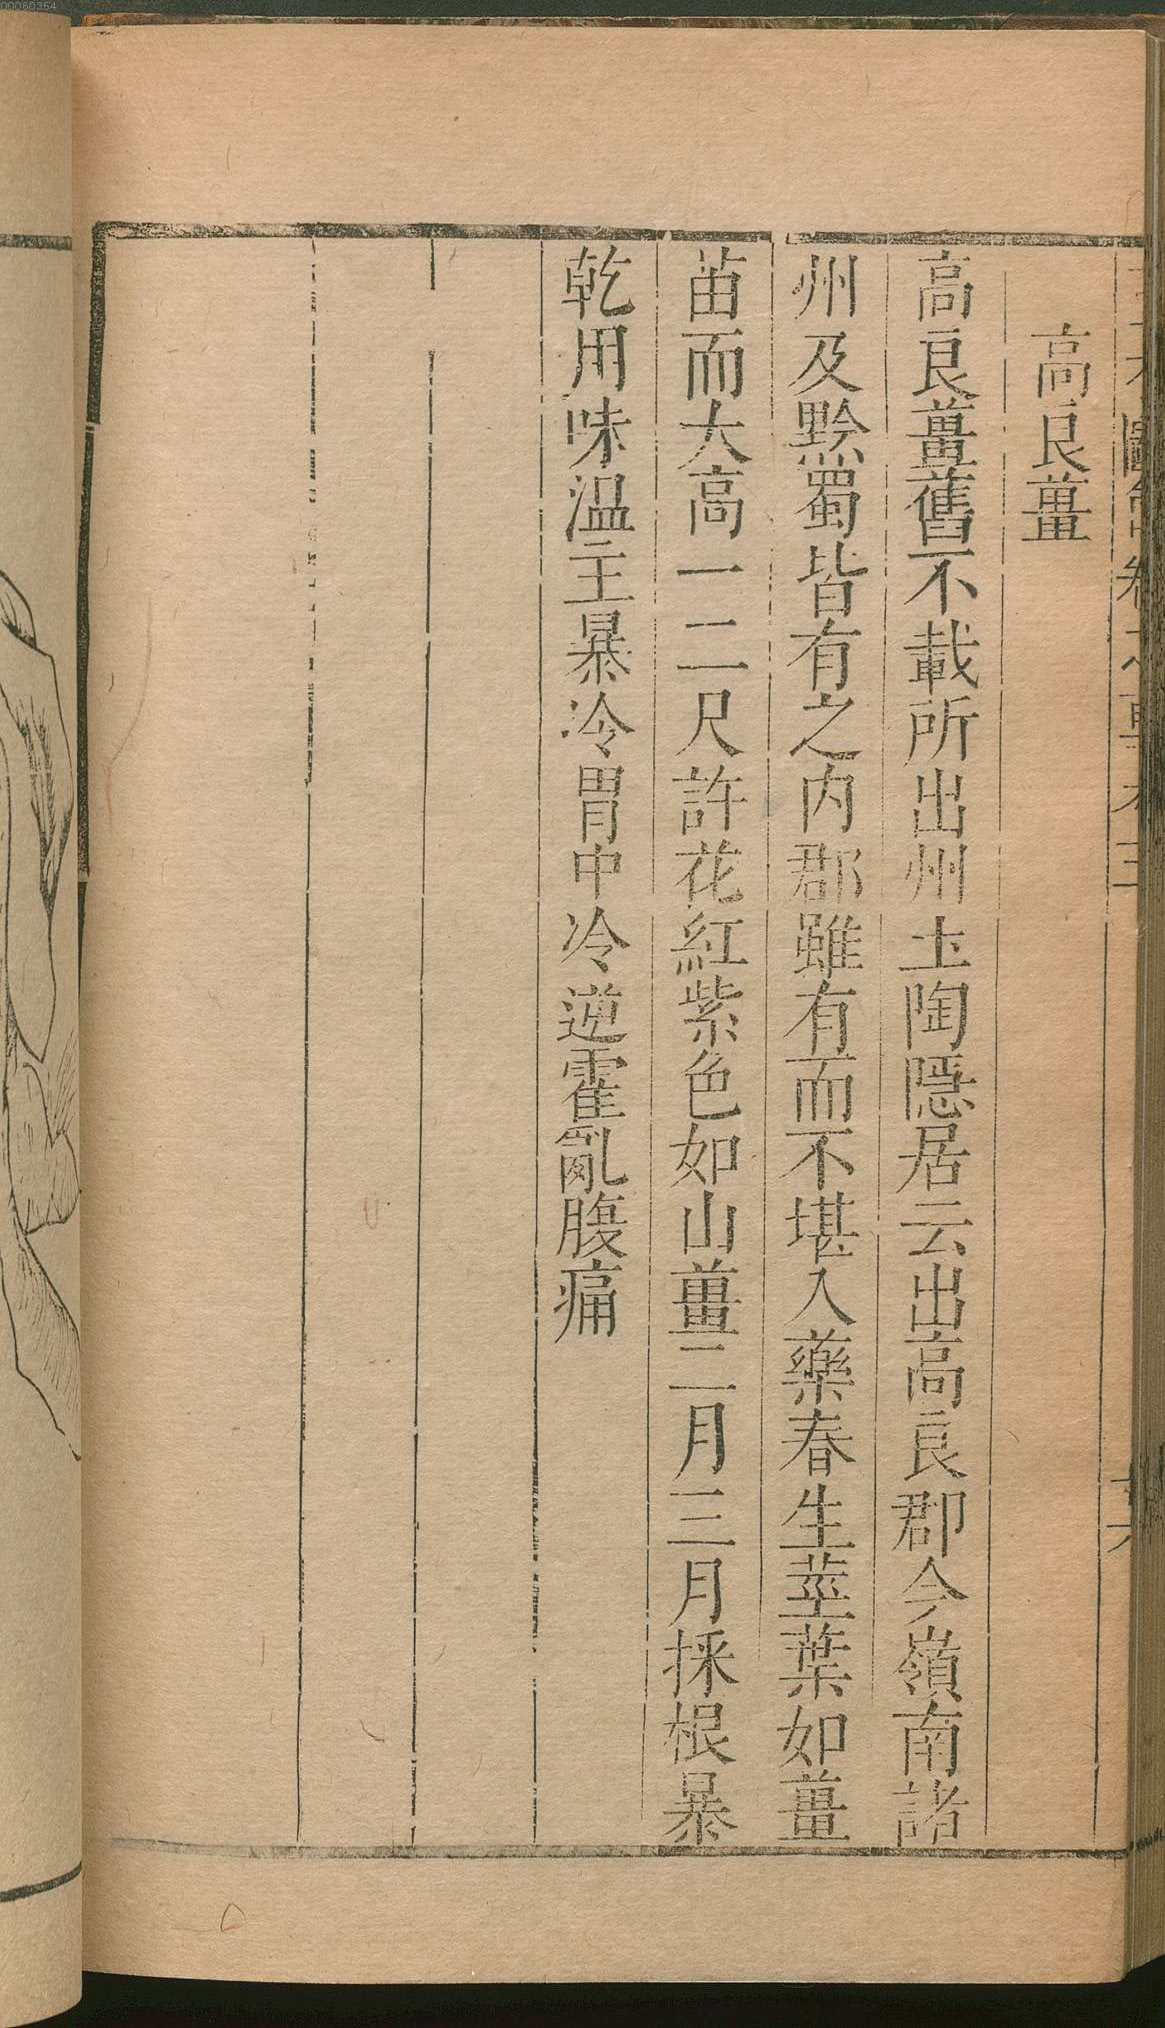 高良薑
高良薑舊不載所出州土陶隱居云出高良郡今嶺南諸
州及黔蜀皆有之内郡雖有而不堪入藥春生莖葉如薑
苗而大高一二尺許花紅紫色如山薑二月三月採根暴
乾用味温主暴冷胃中冷逆霍亂腹痛
00080354